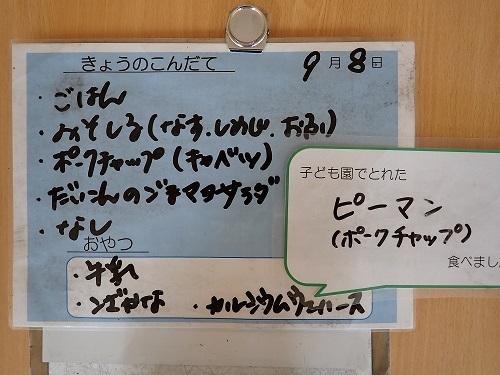 きょうのこんだて 9月8日
・ごはん
・みそしる(なす、しめじ、おふ)
・ポークチャップ(キャベツ)
・だいこんのごまマヨサラダ
・なし
おやつ
・牛乳
・カルシウムウエハース
子ども園でとれた
ピーマン
(ポークチャップ)
食べまし